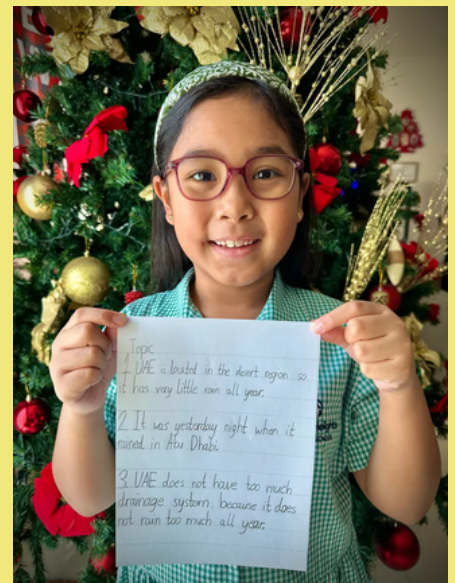 Topic
1. UAE is located in the desert region so
it has very little rain all year.
2. It was yesterday night when it
rained in Abu Dhabi.
3. UAE does not have too much
drainage system, because it does
not rain too much all year.